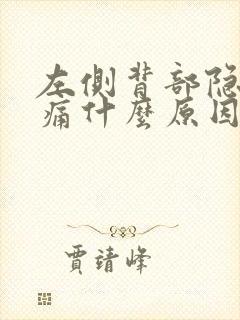 左側背部隐
痛什麼原因
賈靖峰